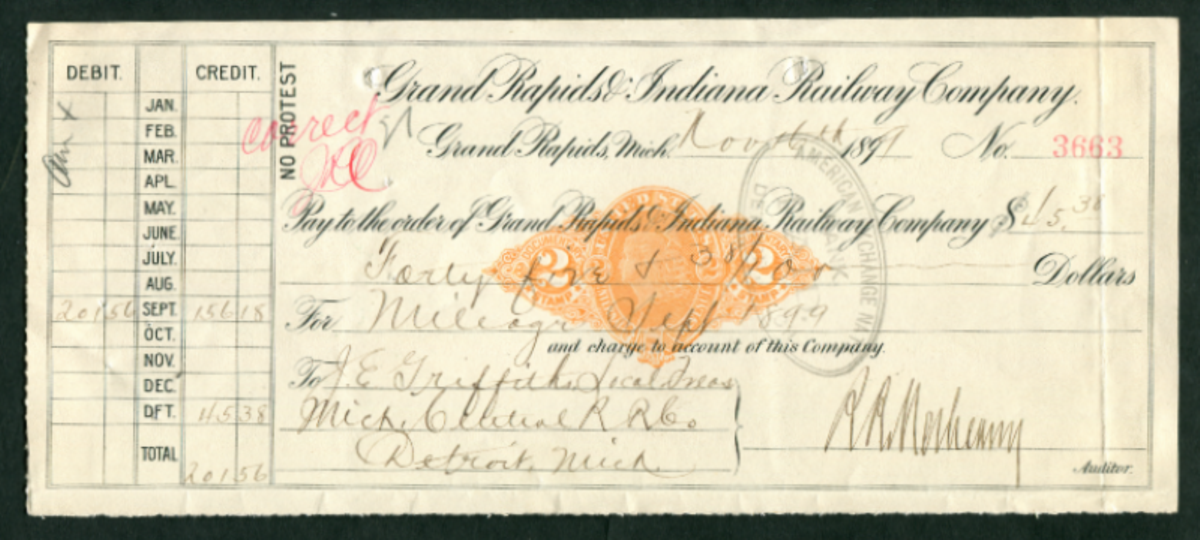 DEBIT. CREDIT.
JAN.
FEB.
MAR.
APL.
MAY.
JUNE
JULY.
AUG.
20156 SEPT. 15618
OCT.
NOV.
DEC.
DFT. 4538
TOTAL
20156
NO PROTEST
correct
Grand Rapids & Indiana Railway Company.
Grand Rapids, Mich. Nov 1899 No. 3663
Pay to the order of Grand Rapids & Indiana Railway Company $45.38
Forty five & 38/100 Dollars
For Mileage Sept 1899
and charge to account of this Company.
To J. E. Griffith Local Treas
Mich. Central R R Co
Detroit, Mich.
Auditor.
2 2
AMERICAN EXCHANGE NA
BANK